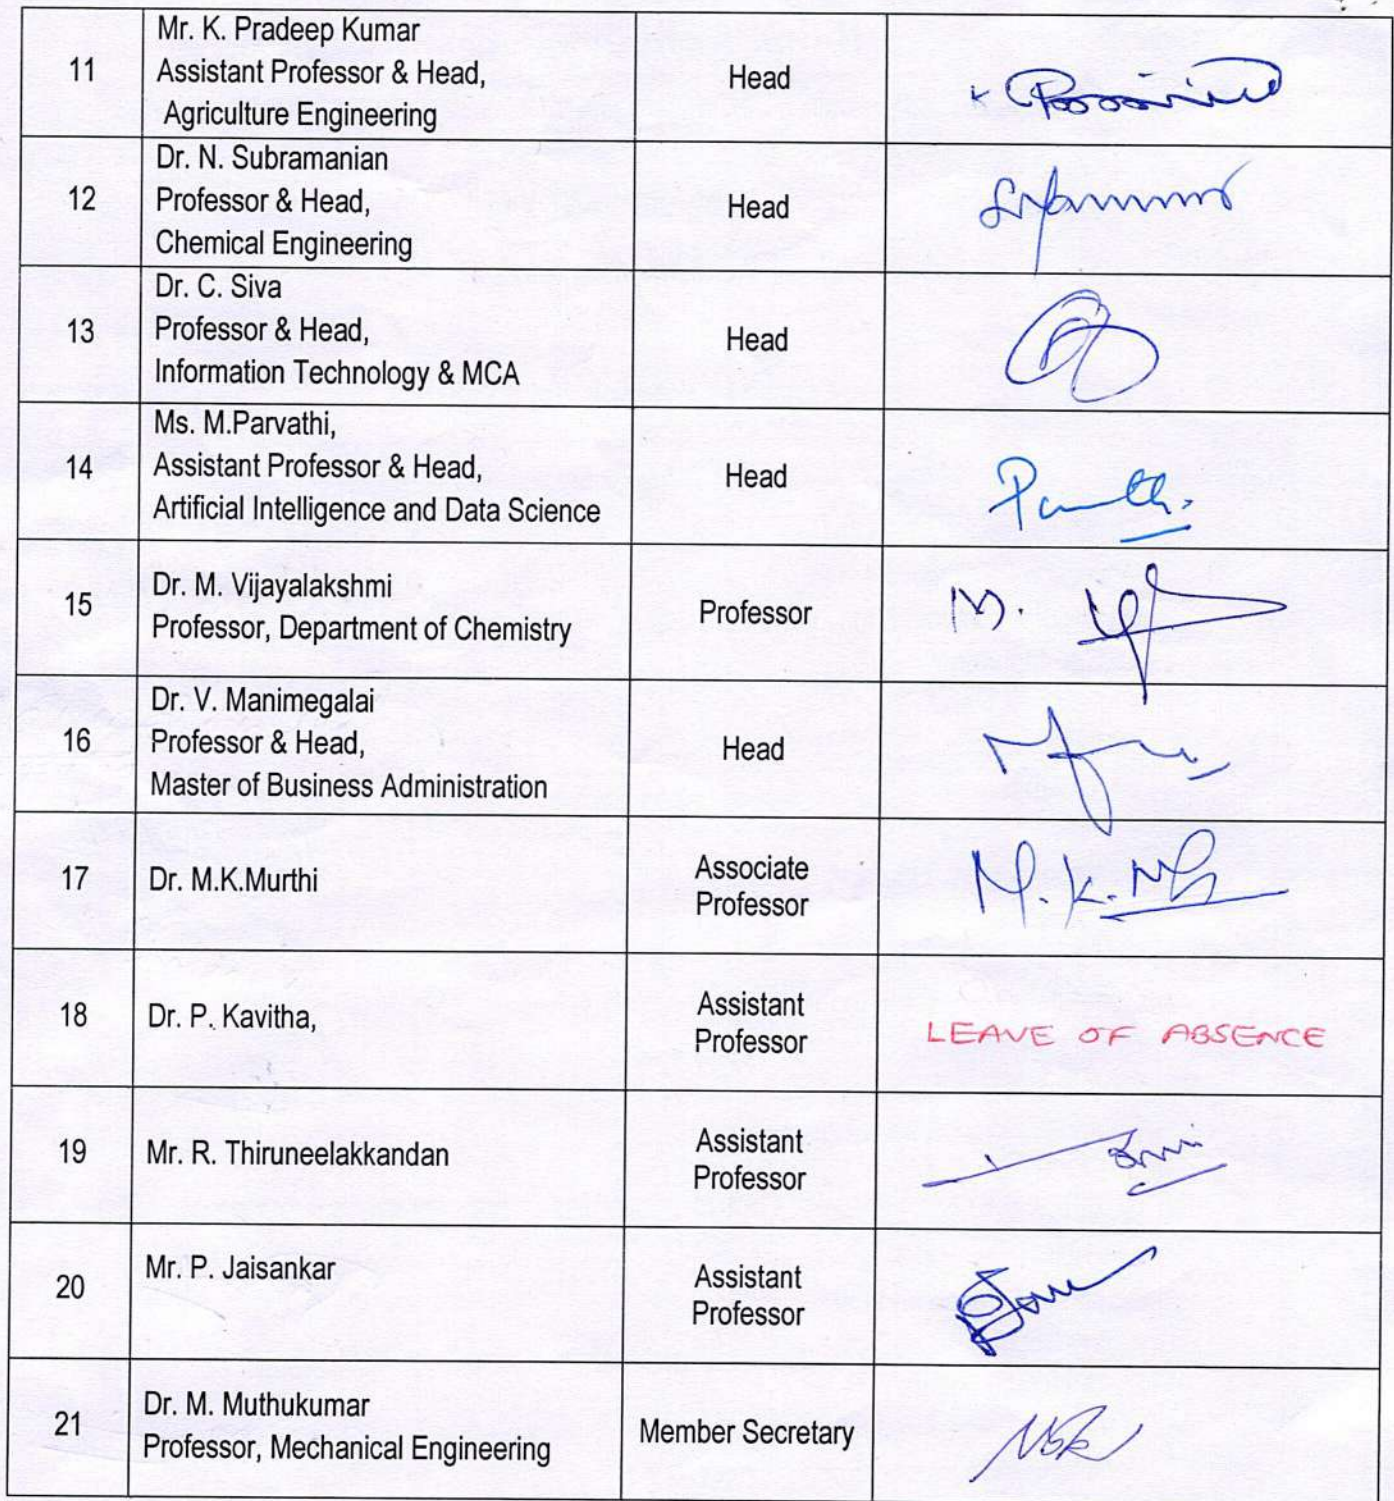 11
Mr. K. Pradeep Kumar
Assistant Professor & Head,
Agriculture Engineering
Head
12
Dr. N. Subramanian
Professor & Head,
Chemical Engineering
Head
13
Dr. C. Siva
Professor & Head,
Information Technology & MCA
Head
14
Ms. M.Parvathi,
Assistant Professor & Head,
Artificial Intelligence and Data Science
Head
15
Dr. M. Vijayalakshmi
Professor, Department of Chemistry
Professor
16
Dr. V. Manimegalai
Professor & Head,
Master of Business Administration
Head
17
Dr. M.K.Murthi
Associate
Professor
18
Dr. P. Kavitha,
Assistant
Professor
LEAVE OF ABSENCE
19
Mr. R. Thiruneelakkandan
Assistant
Professor
20
Mr. P. Jaisankar
Assistant
Professor
21
Dr. M. Muthukumar
Professor, Mechanical Engineering
Member Secretary